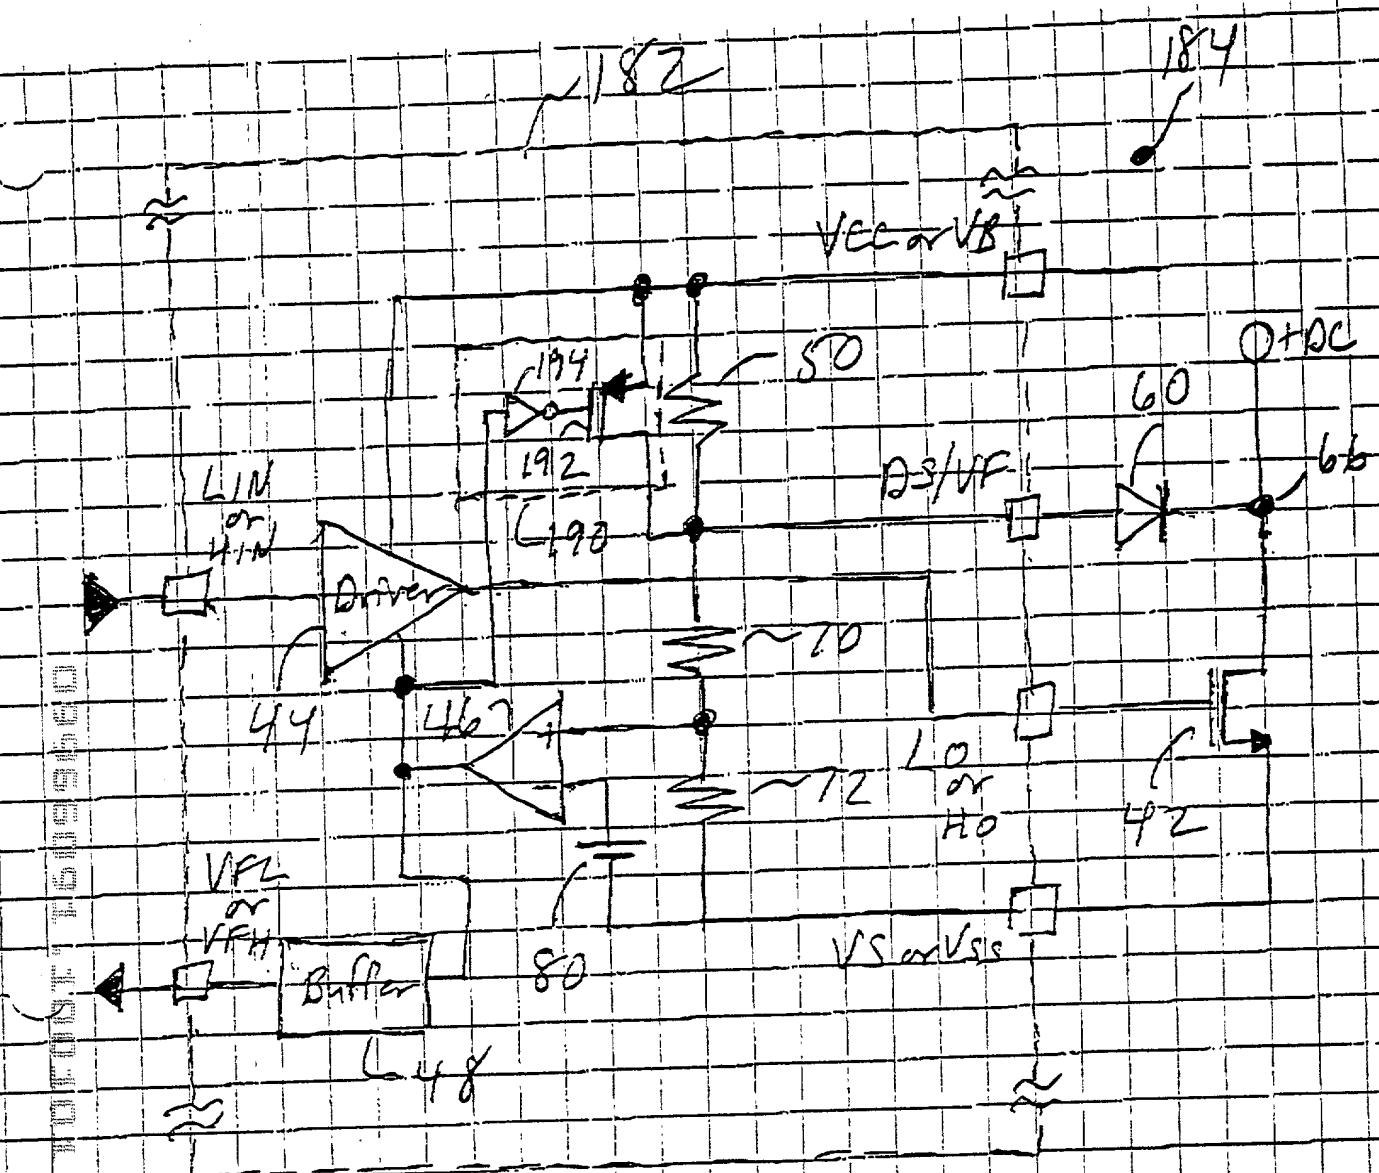 182
184
VCC or VB
+DC
194
50
60
192
DS/VF
66
LIN
or
HIN
190
Driver
70
44
46
+
-
LO
or
HO
72
42
VFL
or
VFH
80
VS or VSS
Buffer
48